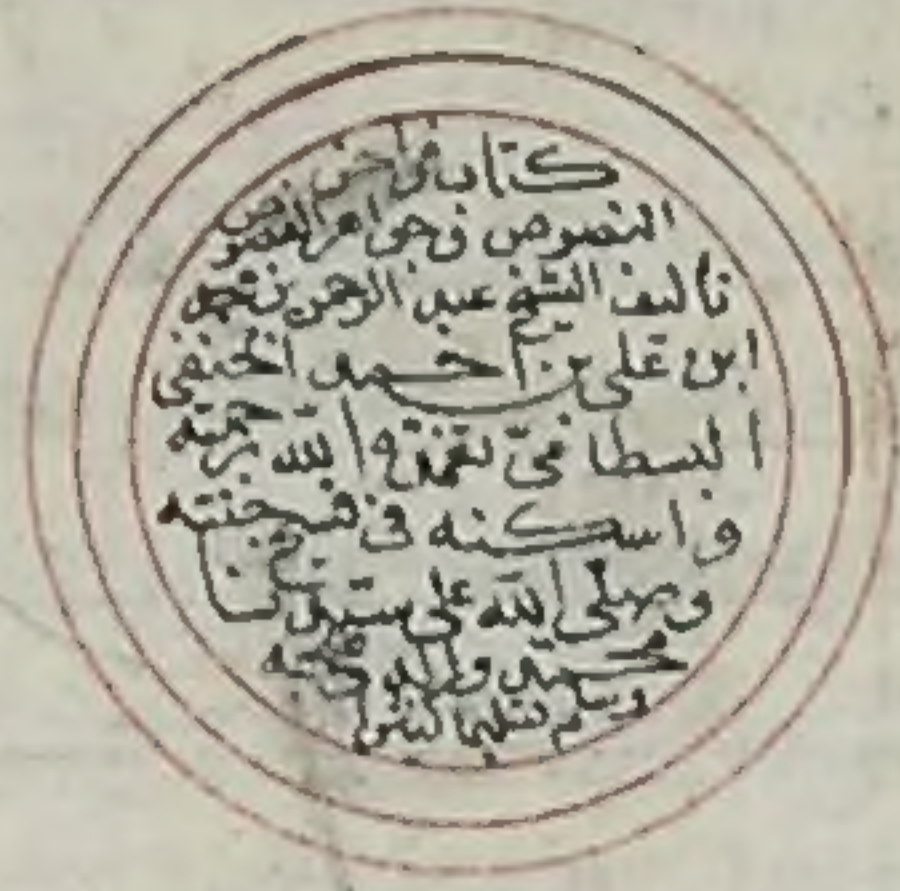 كتاب تراجن نص
النصوص فى جواهر الفصوص
تاليف الشيخ عبد الرحمن بن محمد
ابن على بن احمد الحنفى
البسطامى تغمده الله برحمته
واسكنه فى فسيح جنته
وصلى الله على سيدنا
محمد واله وصحبه
وسلم تسليما كثيرا